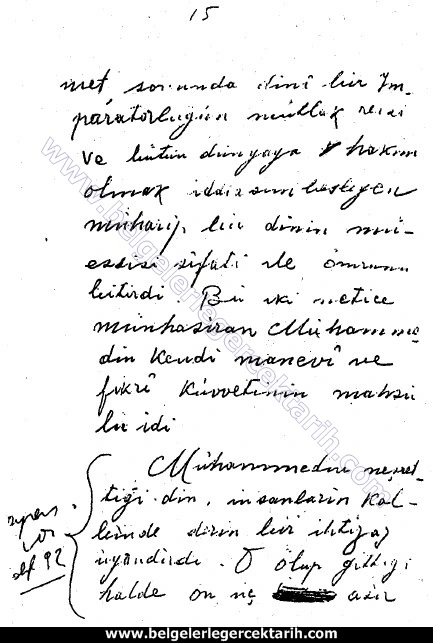 15
met sonunda dinî bir Im-
paratorluğun mutlak reisi
ve bütün dünyaya hakim
olmak iddiasını besliyen
muharip bir dinin mü-
essisi sıfatı ile ömrünü
bitirdi. Bu iki netice
münhasıran Muhamme
din kendi manevî ve
fikrî kuvvetinin mahsu
lü idi
Muhammedin neşret-
tiği din, insanların kal-
binde derin bir ihtizaz
uyandırdı. O ölüp gittiği
halde on üç asır
92
www.belgelerlegercektarih.com
www.belgelerlegercektarih.com